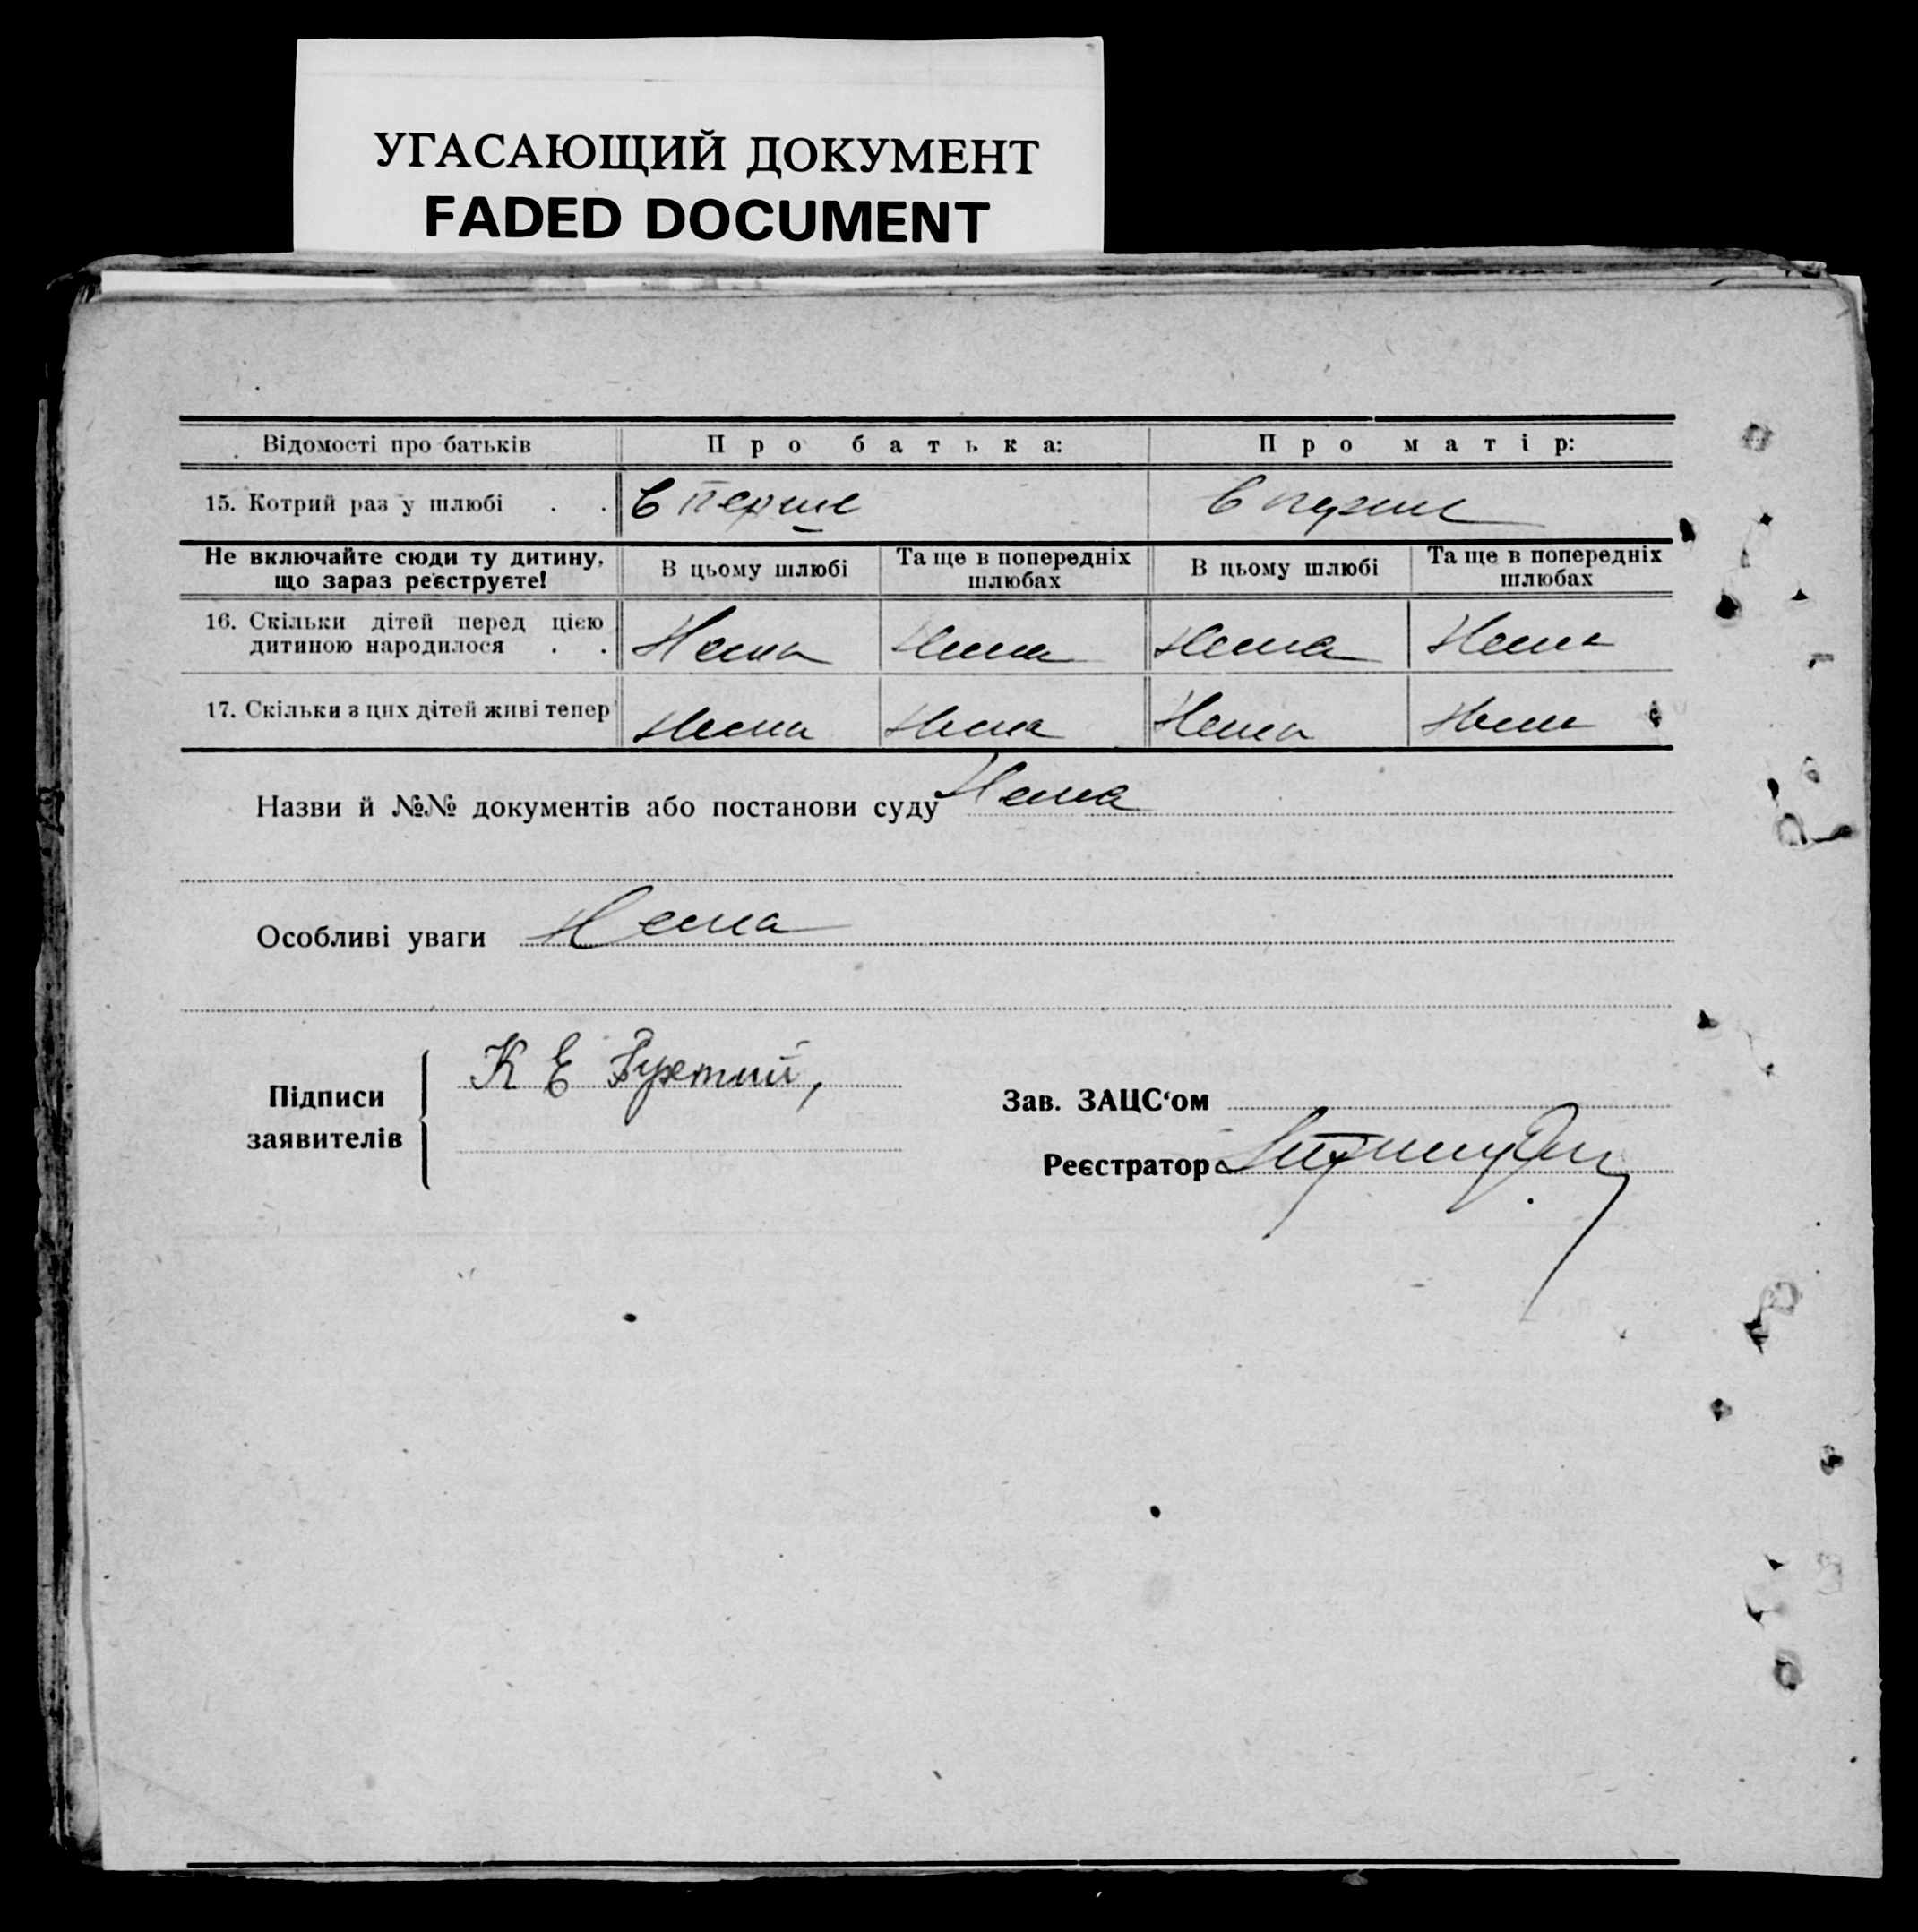 УГАСАЮЩИЙ ДОКУМЕНТ
FADED DOCUMENT
Відомості про батьків Про батька: Про матір:
15. Котрий раз у шлюбі . . Вперше Вперше
Не включайте сюди ту дитину, що зараз реєструєте! В цьому шлюбі Та ще в попередніх шлюбах В цьому шлюбі Та ще в попередніх шлюбах
16. Скільки дітей перед цією
дитиною народилося . . Нема Нема Нема Нема
17. Скільки з цих дітей живі тепер Нема Нема Нема Нема
Назви й №№ документів або постанови суду Нема
Особливі уваги Нема
Підписи
заявителів
К Е
Зав. ЗАЦС‘ом
Реєстратор